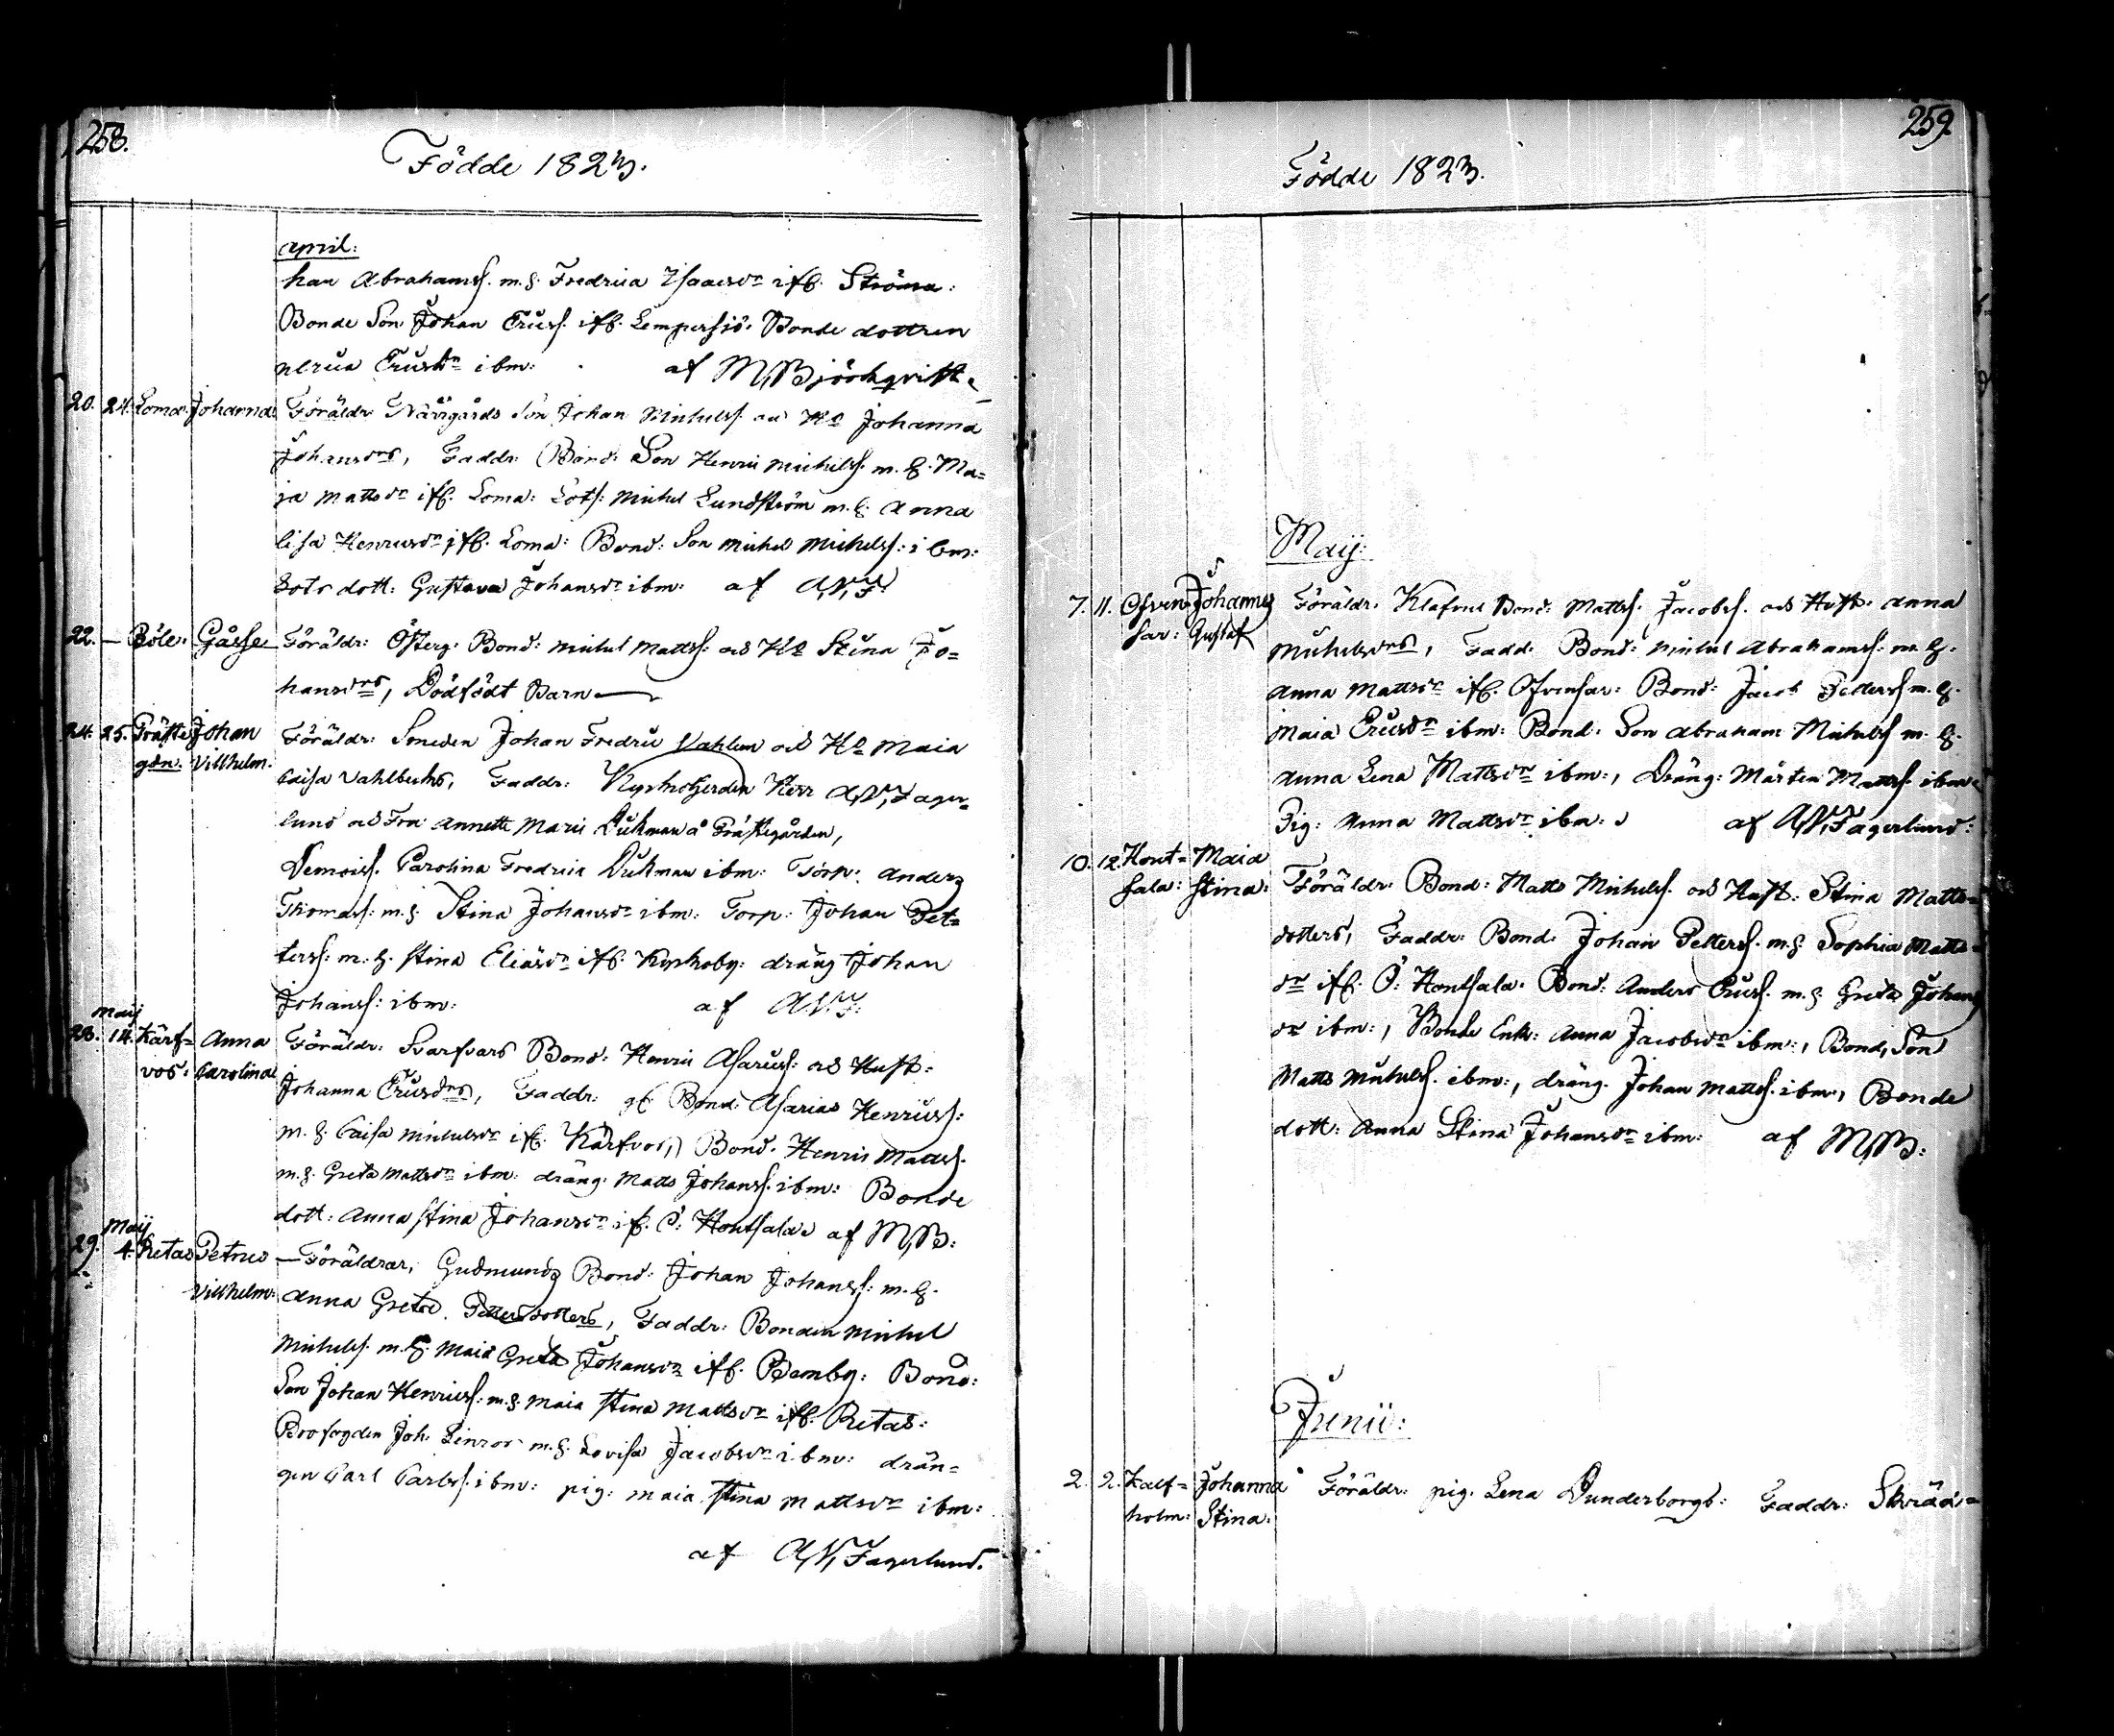 258.
Födde 1823.
April:
han Abrahamss. m. h. Fredrica Isaacsdr ifr. Ströma:
Bonde Son Johan Ericss. ifr. Lempersjö. Bonde dottren
Ulrica Ericsdr ibm: af M,Björkqvist.
20. 24. Loma: Johanna. Föräldr: Norrgårds Son Johan Michelss. och Ho Johanna
Johansdrs, Faddr: Bond: Son Henric Michelss. m. h. Ma=
ja Mattsdr ifr. Loma: Lots: Michel Lundström m. h. Anna
Lisa Henricsdr ifr. Loma: Bond: Son Michel Michelss: ibm:
Lots dott: Gustava Johansdr ibm: af A,V,F.
22. — Böle: Gåsse — Föräldr: Österg. Bond: Michel Mattss: och Ho Stina Jo=
hansdrs, Dödfödt Barn —
24. 25. Präste Johan Föräldr: Smeden Johan Fredric Vahlman och Ho Maia
gdn. Vilhelm. Caisa Vahlbecks, Faddr: Kyrkoherden Herr A,V,Fager=
lund och Fru Annette Marie Dükman å Prästegården,
Demoisl. Carolina Fredrica Dükman ibm: Torp: Anders
Thomass: m. h. Stina Johansdr ibm: Torp: Johan Pet=
terss: m. h. Stina Eliasdr ifr. Kyrkoby: dräng Johan
Johanss: ibm: af A.V.F.
Maij
28. 14. Kärf= Anna Föräldr: Svarfvars Bond: Henric Asariss: och Hust:
vos: Carolina Johanna Ericsdrs, Faddr: gl. Bond: Asarias Henricss:
m. h. Caisa Michelsdr ifr. Kärfvos, Bond. Henric Mattss.
m. h. Greta Mattsdr ibm: dräng: Matts Johanss. ibm: Bonde
dott: Anna Stina Johansdr ifr. Ö: Hontsala. af M,B:
Maij
29. 4. Retas Petrus — Föräldrar, Gudmunds Bond: Johan Johanss: m. h.
Vilhelm: Anna Greta Pettersdotters, Faddr: Bonden Michel
Michelss. m. h. Maia Greta Johansdr ifr. Bemby: Bond:
Son Johan Henricss: m. h. Maia Stina Mattsdr ifr. Retas:
Brofogden Joh. Linros m. h. Lovisa Jacobsdr ibm: drän=
gen Carl Carlss. ibm: pig: Maia Stina Mattsdr ibm:
af A,V,Fagerlund.
259
Födde 1823.
Maij:
7. 11. Ofven= Johannes Föräldr. Klafvus Bond: Mattss. Jacobss. och Hust. Anna
sar: Gustaf Michelsdrs, Fadd. Bond: Michel Abrahamss: m. h.
Anna Mattsdr ifr. Ofvensar: Bond: Jacob Petterss m. h.
Maia Ericsdr ibm: Bond. Son Abraham Michelss m. h.
Anna Lena Mattsdr ibm:, Dräng: Mårten Mattss. ibm:
Pig: Anna Mattsdr ibm: af A,V,Fagerlund:
10. 12 Hont= Maia
sala: Stina: Föräldr: Bond: Matts Michelss. och Hust: Stina Matts=
dotters, Faddr: Bond. Johan Petterss. m. h. Sophia Matts=
dr ifr. Ö: Hontsala. Bond: Anders Ericss. m. h. Greta Johans
dr ibm:, Bonde Enk: Anna Jacobsdr ibm:, Bond, Son
Matts Michelss. ibm:, dräng. Johan Mattss. ibm:, Bonde
dott: Anna Stina Johansdr ibm: af M,B:
Junii:
2. 2. Kalf= Johanna Föräldr: pig. Lena Dunderborgs: Faddr: Skräd=
holm: Stina.